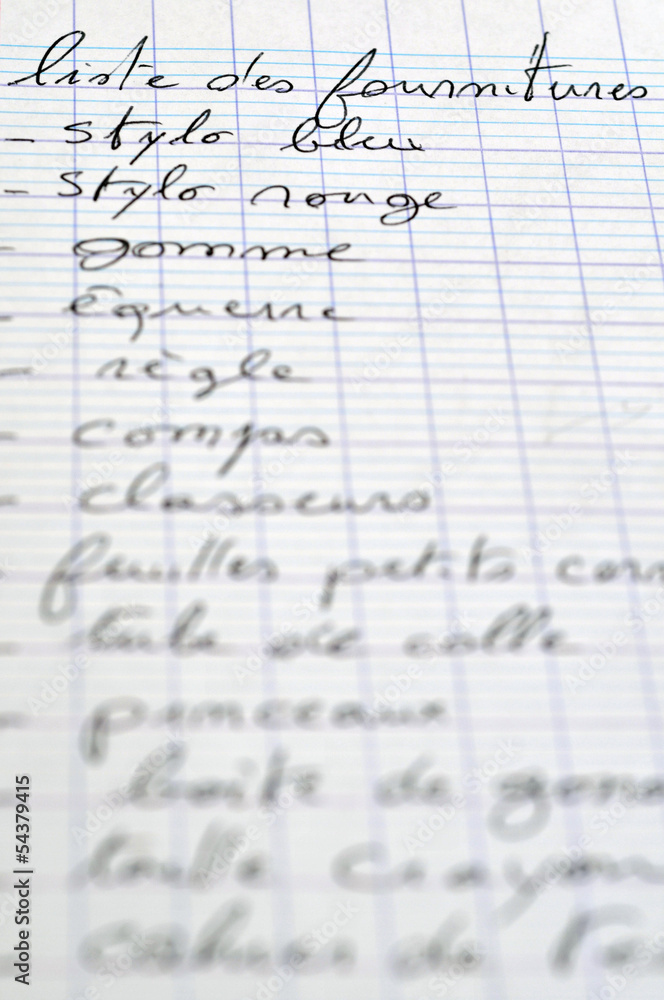 liste des fournitures
- stylo bleu
- stylo rouge
- gomme
- équerre
- règle
- compas
- classeurs
- feuilles petits
- tube de colle
- pinceaux
boite de
taille crayon
cahier de
Adobe Stock | #54379415